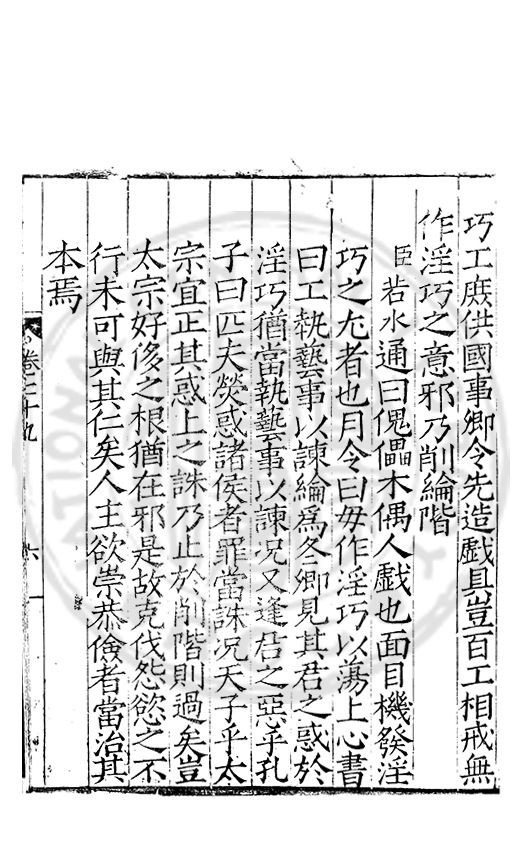 巧工庶供國事卿令先造戲具豈百工相戒無
作淫巧之意邪乃削綸階
臣若水通曰傀儡木偶人戲也面目機發淫
巧之尤者也月令曰毋作淫巧以蕩上心書
曰工執藝事以諫綸為冬卿見其君之惑於
淫巧猶當執藝事以諫況又逢君之惡乎孔
子曰匹夫熒惑諸侯者罪當誅況天子乎太
宗宜正其惑上之誅乃止於削階則過矣豈
太宗好侈之根猶在邪是故克伐怨慾之不
行未可與其仁矣人主欲崇恭儉者當治其
本焉
卷七十九
六